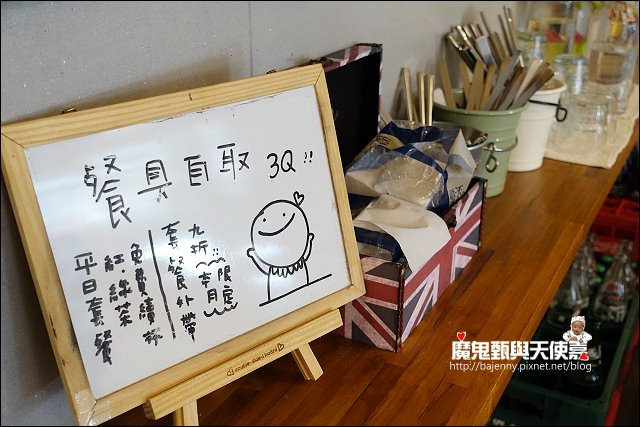 餐具自取 3Q!!
平日套餐
紅.綠茶
免費續杯
套餐外帶
九折~~本月限定
魔鬼甄與天使嘉
http://bajenny.pixnet.net/blog